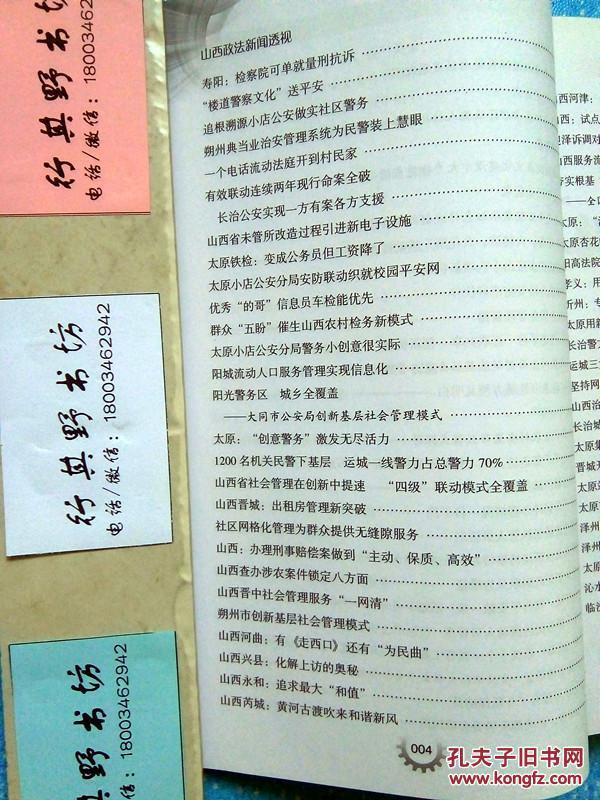 行其野书坊
电话/微信：18003462
行其野书坊
电话/微信：18003462942
其野书坊
信：18003462942
山西政法新闻透视
寿阳：检察院可单就量刑抗诉
“楼道警察文化”送平安
追根溯源小店公安做实社区警务
朔州典当业治安管理系统为民警装上慧眼
一个电话流动法庭开到村民家
有效联动连续两年现行命案全破
长治公安实现一方有案各方支援
山西省未管所改造过程引进新电子设施
太原铁检：变成公务员但工资降了
太原小店公安分局安防联动织就校园平安网
优秀“的哥”信息员车检能优先
群众“五盼”催生山西农村检务新模式
太原小店公安分局警务小创意很实际
阳城流动人口服务管理实现信息化
阳光警务区 城乡全覆盖
——大同市公安局创新基层社会管理模式
太原：“创意警务”激发无尽活力
1200名机关民警下基层 运城一线警力占总警力70%
山西省社会管理在创新中提速 “四级”联动模式全覆盖
山西晋城：出租房管理新突破
社区网格化管理为群众提供无缝隙服务
山西：办理刑事赔偿案做到“主动、保质、高效”
山西查办涉农案件锁定八方面
山西晋中社会管理服务“一网清”
朔州市创新基层社会管理模式
山西河曲：有《走西口》还有“为民曲”
山西兴县：化解上访的奥秘
山西永和：追求最大“和值”
山西芮城：黄河古渡吹来和谐新风
004
西河津：
西：试点
泽诉调对
山西服务流
夯实根基
——全
太原：“
太原杏花
阳高法院
孝义：用
忻州：专
太原用新
长治警力
运城三
坚持网
山西治
长治城
晋城开
太原
泽州
泽州
太原
沁水
临汾
孔夫子旧书网
www.kongfz.com